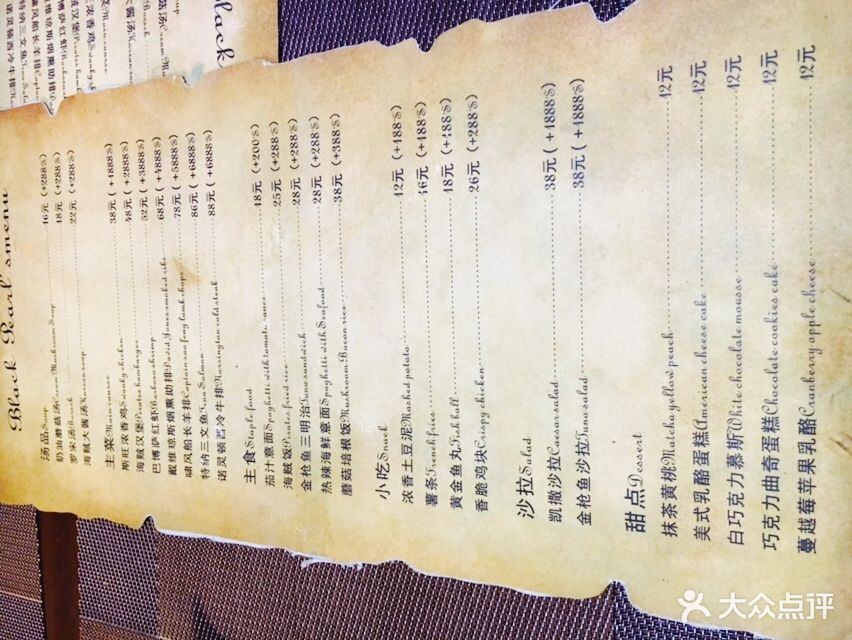 Black Pearl smenu
汤品Soup
奶油蘑菇汤Cream Mushroom Soup 16元（+288%）
罗宋汤Borsch 18元（+288%）
海贼大酱汤Korean soup 22元（+288%）
主菜Main course
斯旺浓香鸡Swanky chicken 38元（+1888%）
海贼汉堡Pirates hamburger 48元（+2888%）
巴博萨红虾Barbosa shrimp 52元（+3888%）
戴维琼斯烟熏肋排David Jones smoked ribs 68元（+4888%）
啸风船长羊排Captain sao feng lamb chops 78元（+5888%）
特纳三文鱼Tena Salmon 86元（+6888%）
诺灵顿西冷牛排Norrington cold steak 88元（+6888%）
主食Staple food
茄汁意面Spaghetti with tomato sauce 18元（+200%）
海贼饭Pirates fried rice 25元（+288%）
金枪鱼三明治Tuna sandwich 28元（+288%）
热辣海鲜意面Spaghetti with Seafood 28元（+288%）
蘑菇培根饭Mushroom Bacon rice 38元（+388%）
小吃Snack
浓香土豆泥Mashed potato 12元（+188%）
薯条French fries 16元（+188%）
黄金鱼丸Fish ball 18元（+188%）
香脆鸡块Crispy chicken 26元（+288%）
沙拉Salad
凯撒沙拉Caesar salad 38元（+1888%）
金枪鱼沙拉Tuna salad 38元（+1888%）
甜点Dessert
抹茶黄桃Matcha yellow peach 12元
美式乳酪蛋糕American cheese cake 12元
白巧克力慕斯White chocolate mousse 12元
巧克力曲奇蛋糕Chocolate cookies cake 12元
蔓越莓苹果乳酪Cranberry apple cheese 12元
Black
大众点评